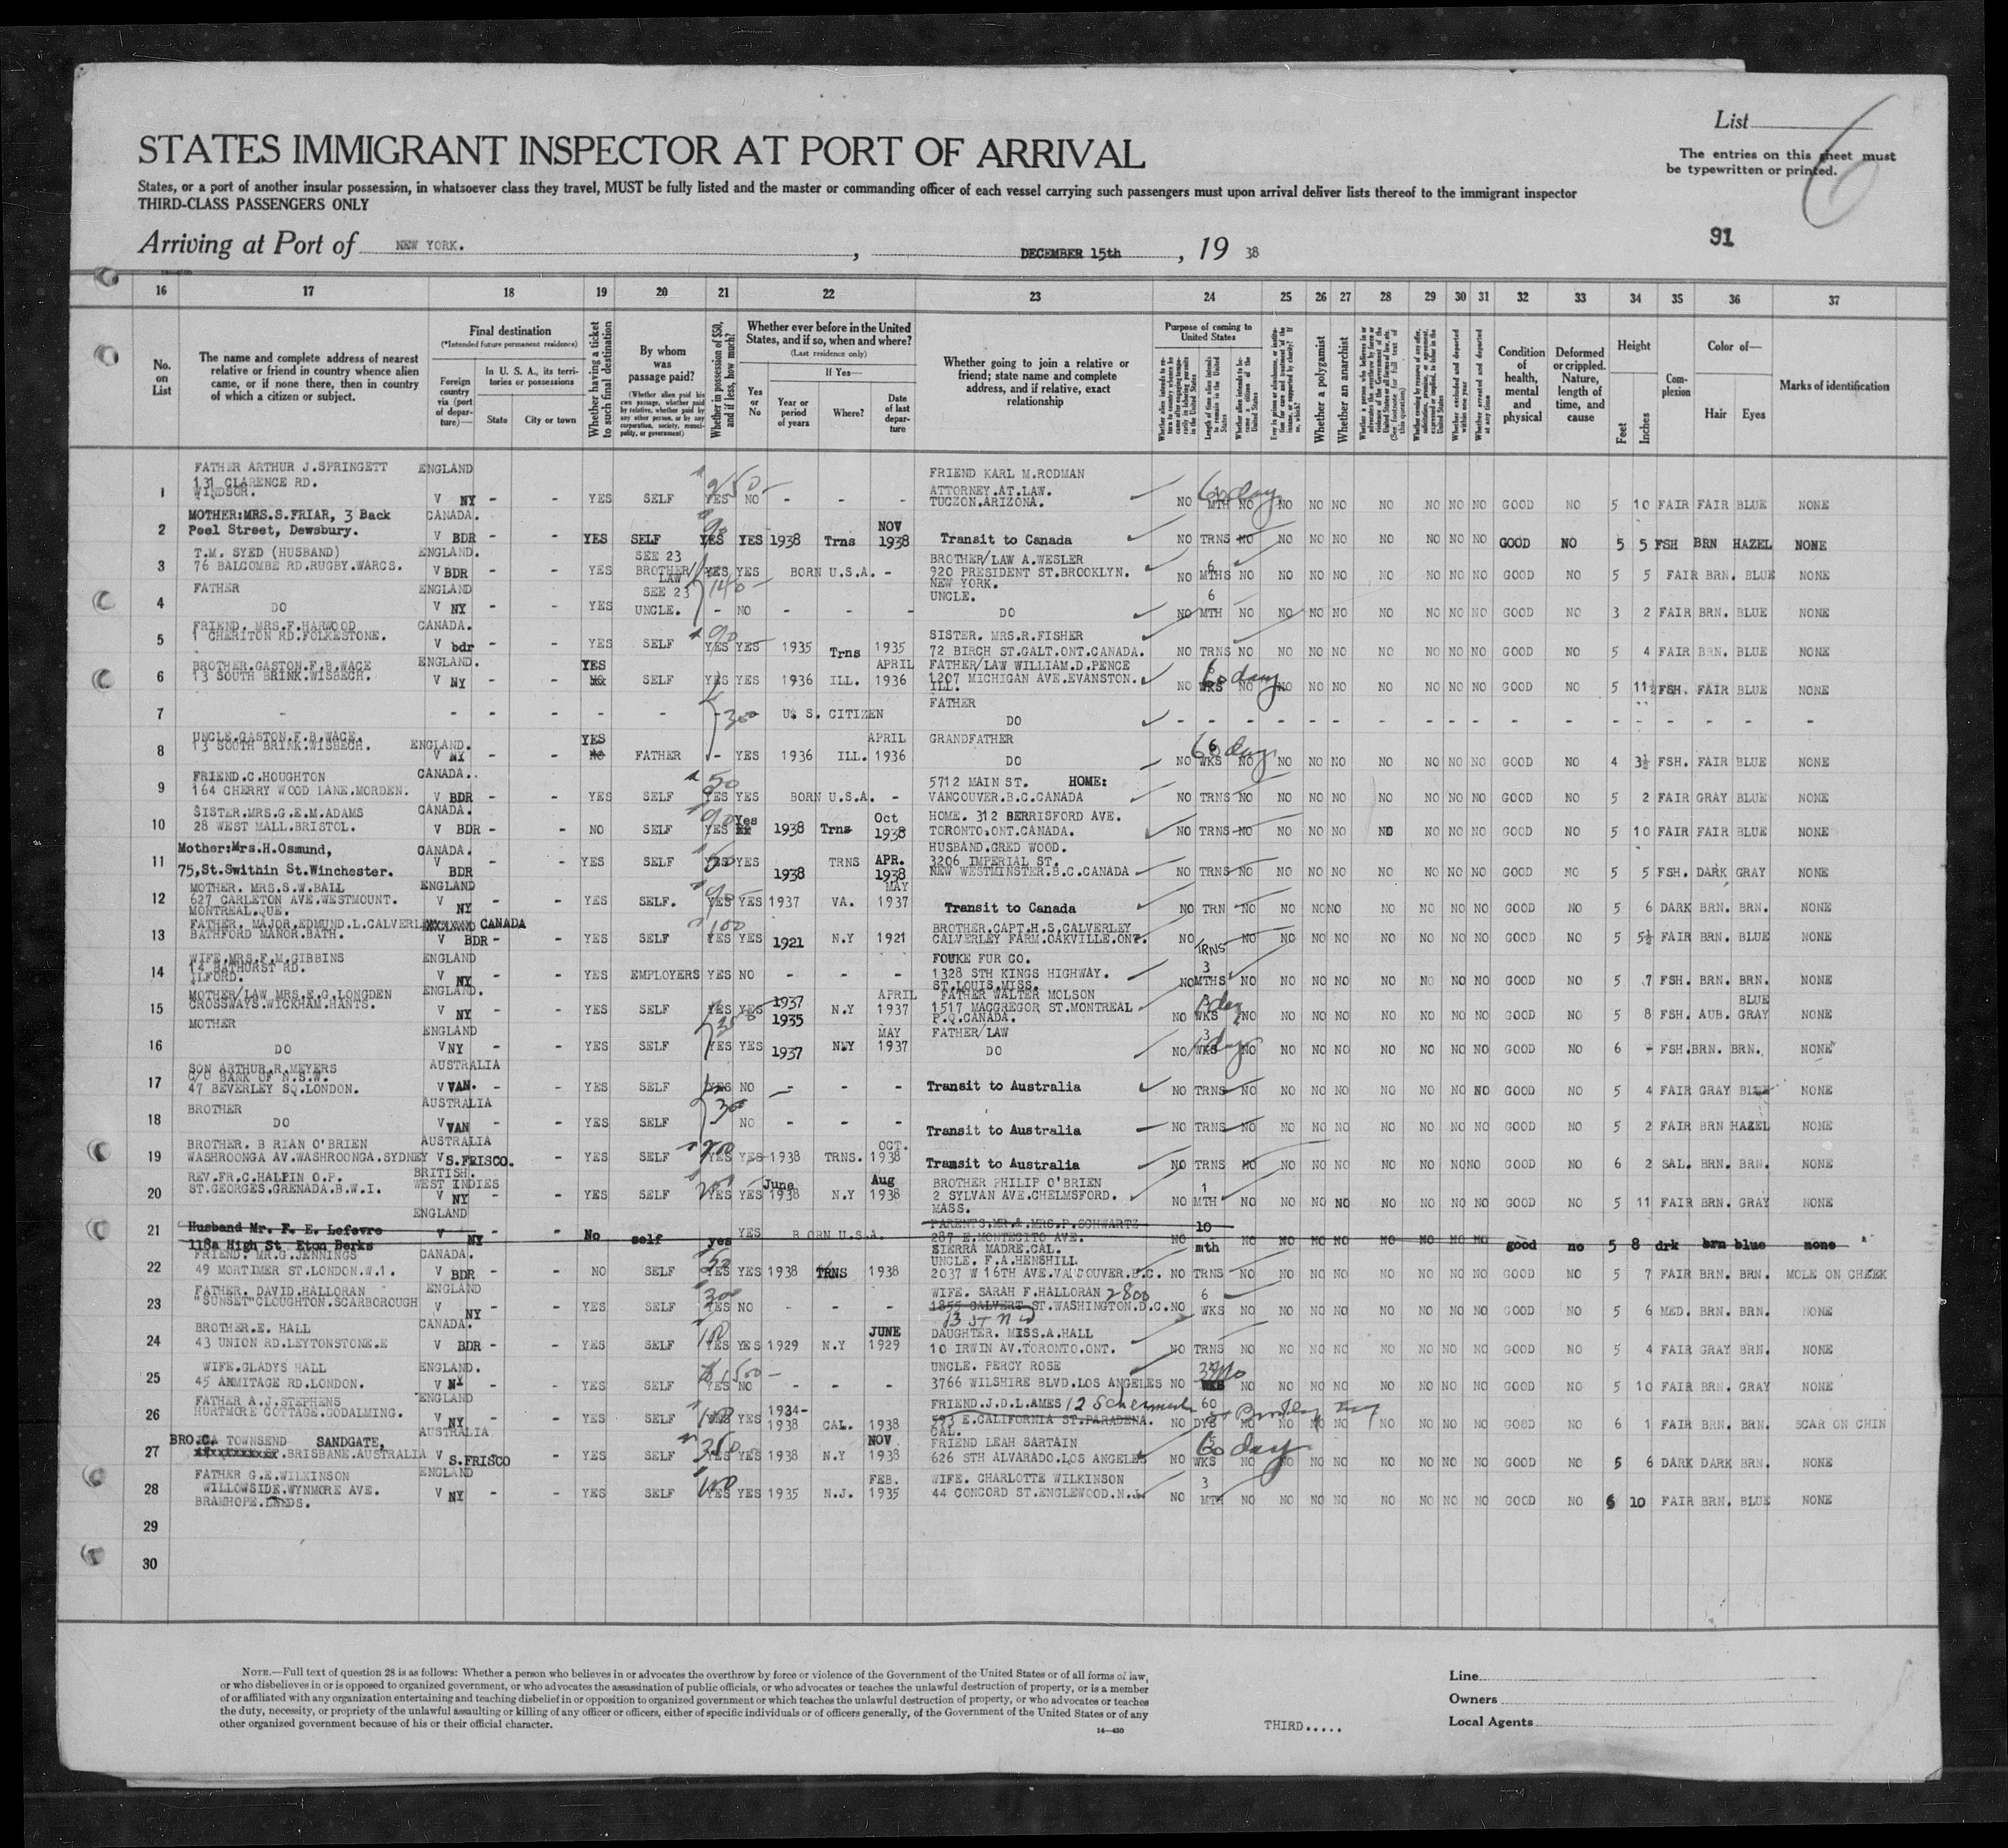 List
6
The entries on this sheet must
be typewritten or printed.
STATES IMMIGRANT INSPECTOR AT PORT OF ARRIVAL
States, or a port of another insular possession, in whatsoever class they travel, MUST be fully listed and the master or commanding officer of each vessel carrying such passengers must upon arrival deliver lists thereof to the immigrant inspector
THIRD-CLASS PASSENGERS ONLY
Arriving at Port of NEW YORK. , DECEMBER 15th , 19 38
91
16 17 18 19 20 21 22 23 24 25 26 27 28 29 30 31 32 33 34 35 36 37
No. on List
The name and complete address of nearest relative or friend in country whence alien came, or if none there, then in country of which a citizen or subject.
Final destination
(*Intended future permanent residence)
Foreign country via (port of departure)—
In U. S. A., its territories or possessions
State City or town
Whether having a ticket to such final destination
By whom was passage paid?
(Whether alien paid his own passage, whether paid by relative, whether paid by any other person, or by any corporation, society, municipality, or government)
Whether in possession of $50, and if less, how much?
Whether ever before in the United States, and if so, when and where?
(Last residence only)
Yes or No
If Yes—
Year or period of years
Where?
Date of last departure
Whether going to join a relative or friend; state name and complete address, and if relative, exact relationship
Purpose of coming to United States
Whether a polygamist
Whether an anarchist
Condition of health, mental and physical
Deformed or crippled. Nature, length of time, and cause
Height
Feet Inches
Complexion
Color of—
Hair Eyes
Marks of identification
FATHER ARTHUR J.SPRINGETT ENGLAND FRIEND KARL M.RODMAN
131 CLARENCE RD. ATTORNEY.AT.LAW.
1 WINDSOR. V NY - - YES SELF YES NO - - - TUCZON.ARIZONA. NO MTH NO NO NO NO NO NO NO NO GOOD NO 5 10 FAIR FAIR BLUE NONE
60 day
MOTHER:MRS.S.FRIAR, 3 Back CANADA. NOV
2 Peel Street, Dewsbury. V BDR YES SELF YES YES 1938 Trns 1938 Transit to Canada NO TRNS NO NO NO NO NO NO NO NO GOOD NO 5 5 FSH BRN HAZEL NONE
T.M. SYED (HUSBAND) ENGLAND. SEE 23 BROTHER/LAW A.WESLER
3 76 BALCOMBE RD.RUGBY.WARCS. V BDR - - YES BROTHER/LAW YES YES BORN U.S.A. - 920 PRESIDENT ST.BROOKLYN. NO 6 MTHS NO NO NO NO NO NO NO NO GOOD NO 5 5 FAIR BRN. BLUE NONE
NEW YORK.
FATHER ENGLAND SEE 23 UNCLE. 6
4 DO V NY - - YES UNCLE. - NO - - - DO NO MTH NO NO NO NO NO NO NO NO GOOD NO 3 2 FAIR BRN. BLUE NONE
FRIEND. MRS.F.HARWOOD CANADA. SISTER. MRS.R.FISHER
5 1 CHERITON RD.FOLKESTONE. V bdr - - YES SELF YES YES 1935 Trns 1935 72 BIRCH ST.GALT.ONT.CANADA. NO TRNS NO NO NO NO NO NO NO NO GOOD NO 5 4 FAIR BRN. BLUE NONE
BROTHER.GASTON.F.B.WACE ENGLAND. YES APRIL FATHER/LAW WILLIAM.D.PENCE
6 13 SOUTH BRINK.WISBECH. V NY - - SELF YES YES 1936 ILL. 1936 1207 MICHIGAN AVE.EVANSTON. NO WKS NO NO NO NO NO NO NO NO GOOD NO 5 11½ FSH. FAIR BLUE NONE
ILL.
60 day
7 - - - - - - U. S. CITIZEN FATHER DO - - - - - - - - - - - - - - - - - -
300
UNCLE.GASTON.F.B.WACE. YES APRIL GRANDFATHER
8 13 SOUTH BRINK.WISBECH. ENGLAND. V NY - - FATHER - YES 1936 ILL. 1936 DO NO 6 WKS NO NO NO NO NO NO NO NO GOOD NO 4 3½ FSH. FAIR BLUE NONE
60 day
FRIEND.C.HOUGHTON CANADA.. 5712 MAIN ST. HOME:
9 164 CHERRY WOOD LANE.MORDEN. V BDR - - YES SELF YES YES BORN U.S.A. - VANCOUVER.B.C.CANADA NO TRNS NO NO NO NO NO NO NO NO GOOD NO 5 2 FAIR GRAY BLUE NONE
50
SISTER.MRS.G.E.M.ADAMS CANADA. Yes Oct HOME. 312 BERRISFORD AVE.
10 28 WEST MALL.BRISTOL. V BDR - - NO SELF YES 1938 Trns 1938 TORONTO.ONT.CANADA. NO TRNS NO NO NO NO NO NO NO NO GOOD NO 5 10 FAIR FAIR BLUE NONE
Mother:Mrs.H.Osmund, CANADA. APR. HUSBAND.GRED WOOD.
11 75,St.Swithin St.Winchester. V BDR - - YES SELF YES YES 1938 TRNS 1938 3206 IMPERIAL ST. NO TRNS NO NO NO NO NO NO NO NO GOOD NO 5 5 FSH. DARK GRAY NONE
NEW WESTMINSTER.B.C.CANADA
MOTHER. MRS.S.W.BALL ENGLAND MAY
12 627 CARLETON AVE.WESTMOUNT. V NY - - YES SELF. YES YES 1937 VA. 1937 Transit to Canada NO TRN NO NO NO NO NO NO NO NO GOOD NO 5 6 DARK BRN. BRN. NONE
MONTREAL.QUE.
FATHER. MAJOR.EDMUND.L.CALVERLEY CANADA BROTHER.CAPT.H.S.CALVERLEY
13 BATHFORD MANOR.BATH. V BDR - - YES SELF YES YES 1921 N.Y 1921 CALVERLEY FARM.OAKVILLE.ONT. NO TRNS NO NO NO NO NO NO NO NO GOOD NO 5 5½ FAIR BRN. BLUE NONE
100
WIFE.MRS.F.M.GIBBINS ENGLAND FOUKE FUR CO. 3
14 14 BATHURST RD. V NY - - YES EMPLOYERS YES NO - - - 1328 STH KINGS HIGHWAY. NO MTHS NO NO NO NO NO NO NO NO GOOD NO 5 7 FSH. BRN. BRN. NONE
ILFORD. ST.LOUIS.MISS.
MOTHER/LAW MRS.E.G.LONGDEN ENGLAND. 1937 APRIL FATHER WALTER MOLSON BLUE
15 CROSSWAYS.WICKHAM.HANTS. V NY - - YES SELF YES YES 1935 N.Y 1937 1517 MACGREGOR ST.MONTREAL NO WKS NO NO NO NO NO NO NO NO GOOD NO 5 8 FSH. AUB. GRAY NONE
P.Q.CANADA.
MOTHER ENGLAND MAY FATHER/LAW 3
16 DO V NY - - YES SELF YES YES 1937 N.Y 1937 DO NO WKS NO NO NO NO NO NO NO NO GOOD NO 6 - FSH. BRN. BRN. NONE
SON ARTHUR.R.MEYERS AUSTRALIA
C/O BANK OF N.S.W.
17 47 BEVERLEY SQ.LONDON. V VAN. - - YES SELF YES NO - - - Transit to Australia NO TRNS NO NO NO NO NO NO NO NO GOOD NO 5 4 FAIR GRAY BLUE NONE
300
BROTHER AUSTRALIA
18 DO V VAN - - YES SELF NO - - - Transit to Australia NO TRNS NO NO NO NO NO NO NO NO GOOD NO 5 2 FAIR BRN HAZEL NONE
BROTHER. B RIAN O'BRIEN AUSTRALIA OCT.
19 WASHROONGA AV.WASHROONGA.SYDNEY V S.FRISCO. - YES SELF YES YES 1938 TRNS. 1938 Transit to Australia NO TRNS NO NO NO NO NO NO NO NO GOOD NO 6 2 SAL. BRN. BRN. NONE
REV.FR.C.HALPIN O.P. BRITISH. WEST INDIES June Aug BROTHER PHILIP O'BRIEN 1
20 ST.GEORGES.GRENADA.B.W.I. V NY - - YES SELF YES YES 1938 N.Y 1938 2 SYLVAN AVE.CHELMSFORD. NO MTH NO NO NO NO NO NO NO NO GOOD NO 5 11 FAIR BRN. GRAY NONE
MASS.
ENGLAND PARENTS.MR.&.MRS.P.SCHWARTZ 10
21 Husband Mr. F. E. Lefevre V NY - - No self yes YES B ORN U.S.A. 287 E.MONTECITO AVE. NO mth NO NO NO NO NO NO NO NO good no 5 8 drk brn blue none
118a High St Eton Berks SIERRA MADRE.CAL.
FRIEND. MR.G.JENNINGS CANADA. UNCLE. F.A.HENSHILL
22 49 MORTIMER ST.LONDON.W.1. V BDR - - NO SELF YES YES 1938 TRNS 1938 2037 W 16TH AVE.VANCOUVER.B.C. NO TRNS NO NO NO NO NO NO NO NO GOOD NO 5 7 FAIR BRN. BRN. MOLE ON CHEEK
FATHER. DAVID.HALLORAN ENGLAND WIFE. SARAH F.HALLORAN 2800 6
23 "SUNSET"CLOUGHTON.SCARBOROUGH V NY - - YES SELF YES NO - - - 1855 CALVERT ST.WASHINGTON.D.C. NO WKS NO NO NO NO NO NO NO NO GOOD NO 5 6 MED. BRN. BRN. NONE
300
CANADA. JUNE DAUGHTER. MISS.A.HALL
BROTHER.E. HALL
24 43 UNION RD.LEYTONSTONE.E V BDR - - YES SELF YES YES 1929 N.Y 1929 10 IRWIN AV.TORONTO.ONT. NO TRNS NO NO NO NO NO NO NO NO GOOD NO 5 4 FAIR GRAY BRN. NONE
WIFE.GLADYS HALL ENGLAND. UNCLE. PERCY ROSE
25 45 ARMITAGE RD.LONDON. V NY - - YES SELF YES NO - - - 3766 WILSHIRE BLVD.LOS ANGELES NO WKS NO NO NO NO NO NO NO NO GOOD NO 5 10 FAIR BRN. GRAY NONE
FATHER A.J.STEPHENS ENGLAND 1934- FRIEND.J.D.L.AMES 60
26 HURTMORE COTTAGE.GODALMING. V NY - - YES SELF YES YES 1938 CAL. 1938 293 E.CALIFORNIA ST.PARADENA. NO DYS NO NO NO NO NO NO NO NO GOOD NO 6 1 FAIR BRN. BRN. SCAR ON CHIN
CAL.
TOWNSEND SANDGATE, AUSTRALIA NOV FRIEND LEAH SARTAIN
27 BRISBANE.AUSTRALIA V S.FRISCO - YES SELF YES YES 1938 N.Y 1938 626 STH ALVARADO.LOS ANGELES NO WKS NO NO NO NO NO NO NO NO GOOD NO 5 6 DARK DARK BRN. NONE
60 day
FATHER G.E.WILKINSON ENGLAND FEB. WIFE. CHARLOTTE WILKINSON 3
28 WILLOWSIDE.WYNMORE AVE. V NY - - YES SELF YES YES 1935 N.J. 1935 44 CONCORD ST.ENGLEWOOD.N.J. NO MTH NO NO NO NO NO NO NO NO GOOD NO 10 FAIR BRN. BLUE NONE
BRAMHOPE.LEEDS.
29
30
NOTE.—Full text of question 28 is as follows: Whether a person who believes in or advocates the overthrow by force or violence of the Government of the United States or of all forms of law,
or who disbelieves in or is opposed to organized government, or who advocates the assassination of public officials, or who advocates or teaches the unlawful destruction of property, or is a member
of or affiliated with any organization entertaining and teaching disbelief in or opposition to organized government or which teaches the unlawful destruction of property, or who advocates or teaches
the duty, necessity, or propriety of the unlawful assaulting or killing of any officer or officers, either of specific individuals or of officers generally, of the Government of the United States or of any
other organized government because of his or their official character.
14—430
THIRD.....
Line
Owners
Local Agents